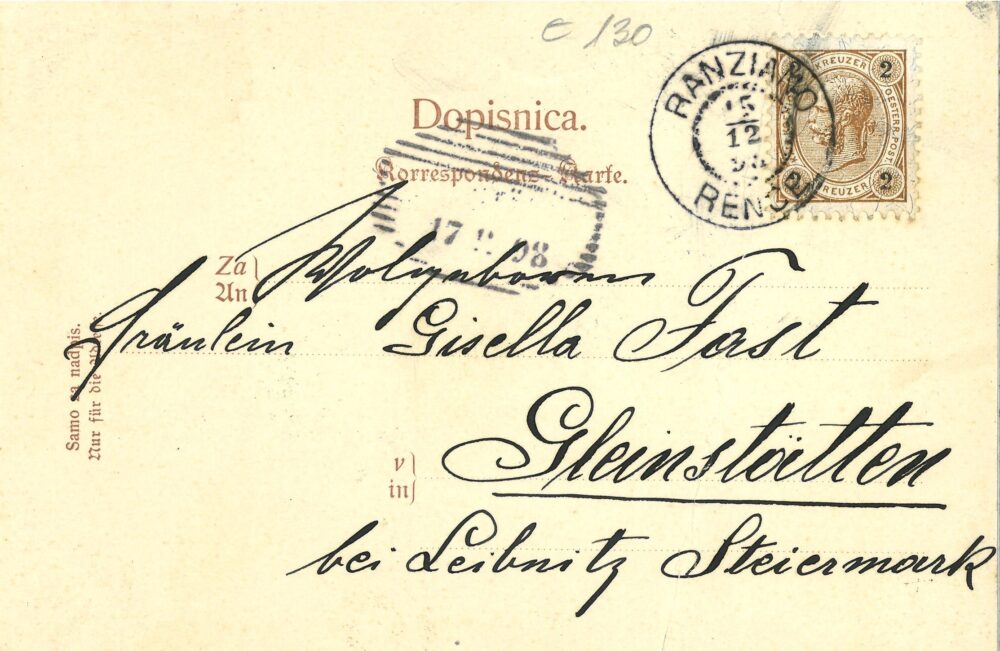 E 130
RANZIANO
15
12
98
RENČE
KREUZER
2
OESTERR. POST
KREUZER
2
Dopisnica.
Korrespondenz-Karte.
17 12 98
Za
An
Wolgeboren
Fräulein Gisella Fast
Samo za nadpis.
Nur für die Adresse.
v
in
Gleinstätten
bei Leibnitz Steiermark